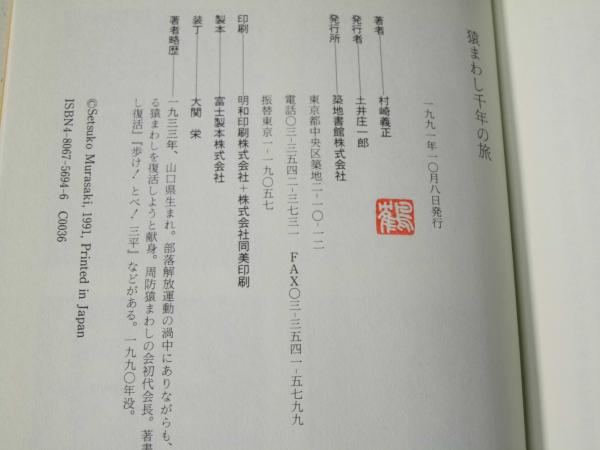 猿まわし千年の旅
一九九一年一〇月八日発行
著者―――村崎義正
発行者―――土井庄一郎
発行所―――築地書館株式会社
東京都中央区築地二-一〇-一二
電話〇三-三五四二-三七三一 FAX〇三-三五四一-五七九九
振替東京一-一九〇五七
印刷―――明和印刷株式会社+株式会社同美印刷
製本―――富士製本株式会社
装丁―――大関 栄
著者略歴―――一九三三年、山口県生まれ。部落解放運動の渦中にありながらも、
る猿まわしを復活しようと献身。周防猿まわしの会初代会長。著書
し復活』『歩け!とべ!三平』などがある。一九九〇年没。
©Setsuko Murasaki, 1991, Printed in Japan
ISBN4-8067-5694-6 C0036